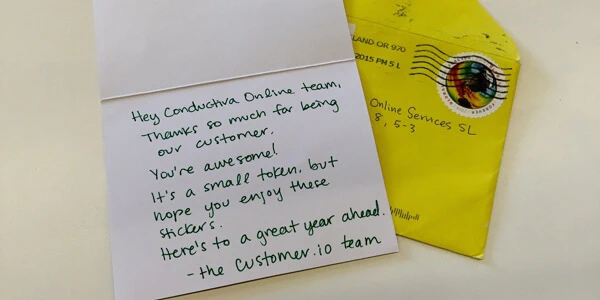 Hey Conductiva Online team,
Thanks so much for being
our customer.
You're awesome!
It's a small token, but
hope you enjoy these
stickers.
Here's to a great year ahead.
- the customer.io team
LAND OR 970
2015 PM 5 L
Online Services SL
8, 5-3
FOREVER